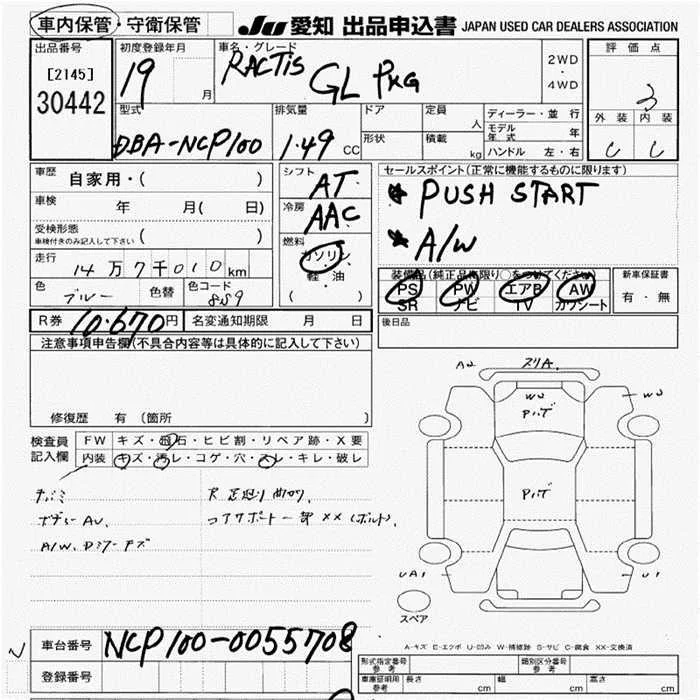 車内保管・守衛保管 JU 愛知 出品申込書 JAPAN USED CAR DEALERS ASSOCIATION
出品番号 初度登録年月 車名・グレード 評価点
[2145] 19 月 RACTIS GL PKG 2WD・4WD 3
30442
型式 排気量 ドア 定員 人 ディーラー・並行 外装 内装
モデル年式 年
DBA-NCP100 1.49 CC 形状 積載 kg ハンドル 左・右 C C
車歴 自家用・( ) シフト AT セールスポイント(正常に機能するものに限ります)
車検 年 月( 日) 冷房 AAC * PUSH START
受検形態 ( ) 燃料 ガソリン * A/W
車検付きのみ記入して下さい
走行 14万7千010km 軽・油 装備品(純正品権限り○をつけてください) 新車保証書
色 ブルー 色替 色コード 8S9 ( ) PS PW エアB AW 有・無
SR ナビ TV カワシート
R券 10,670円 名変通知期限 月 日 後日品
注意事項申告欄(不具合内容等は具体的に記入して下さい)
A2
W2 W2
Pハゲ
修復歴 有 (箇所 )
検査員 FW キズ・飛石・ヒビ割・リペア跡・X要
記入欄 内装 キズ・汚レ・コゲ・穴・スレ・キレ・破レ
Pハゲ
ボデーAU
コアサポート一部××(ボルト)
UA1 U1
スペア
A-キズ E-エクボ U-凹み W-補修跡 S-サビ C-腐食 XX-交換済
車台番号 NCP100-0055708
型式指定番号 参考 類別区分番号 参考
登録番号 車庫証明用 参考 長さ cm 幅 cm 高さ cm